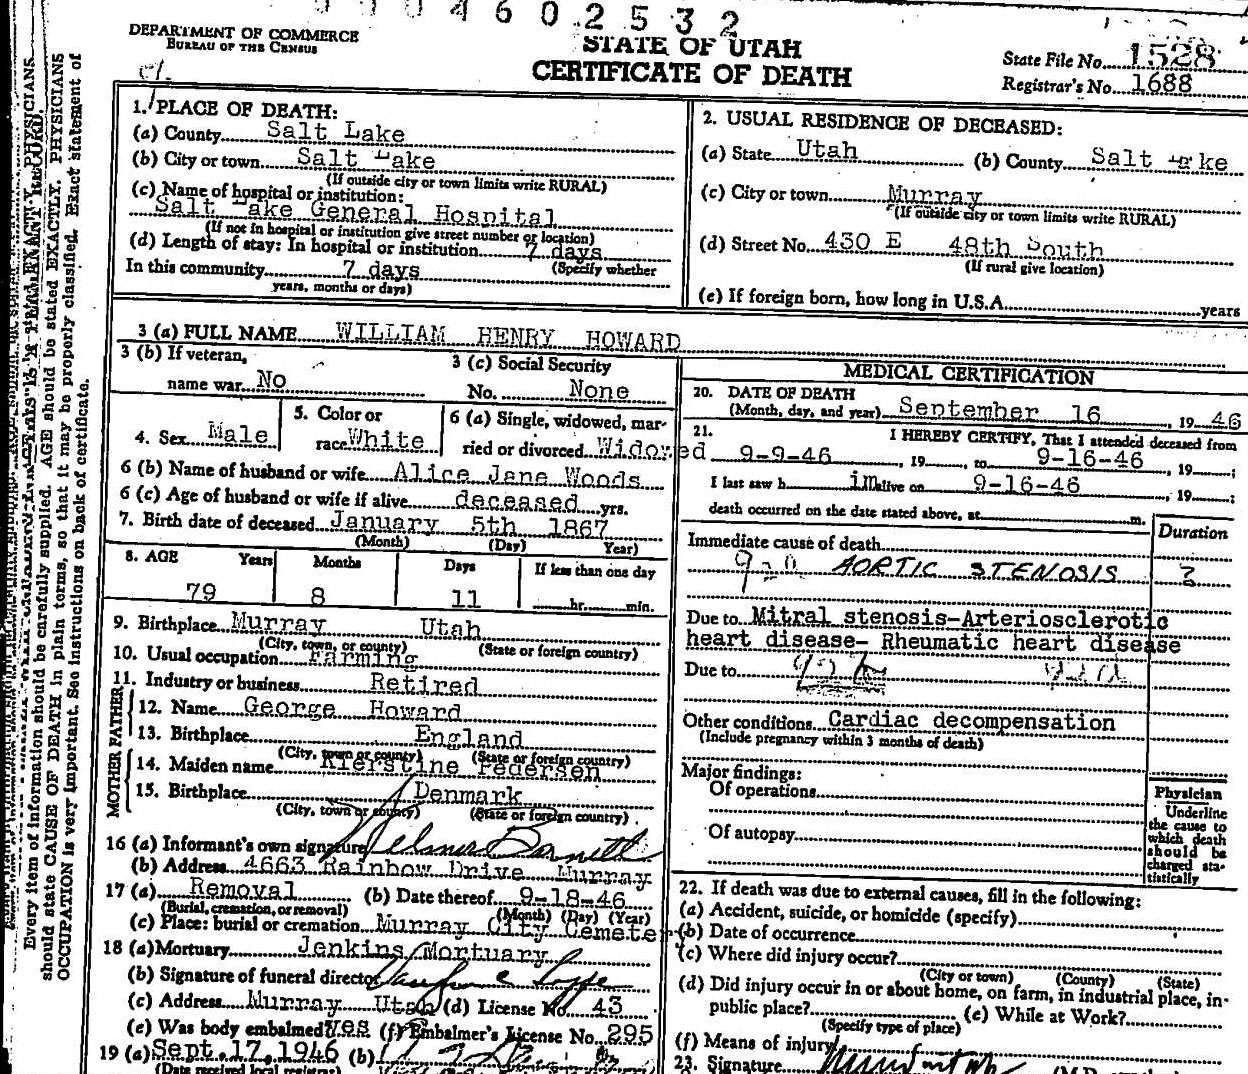 0004602532
DEPARTMENT OF COMMERCE
BUREAU OF THE CENSUS
STATE OF UTAH
CERTIFICATE OF DEATH
State File No. 1528
Registrar's No. 1688
Every item of information should be carefully supplied. AGE should be stated EXACTLY. PHYSICIANS
should state CAUSE OF DEATH in plain terms, so that it may be properly classified. Exact statement of
OCCUPATION is very important. See instructions on back of certificate.
1. PLACE OF DEATH:
(a) County Salt Lake
(b) City or town Salt Lake
(If outside city or town limits write RURAL)
(c) Name of hospital or institution:
Salt Lake General Hospital
(If not in hospital or institution give street number or location)
(d) Length of stay: In hospital or institution 7 days
In this community 7 days (Specify whether
years, months or days)
2. USUAL RESIDENCE OF DECEASED:
(a) State Utah (b) County Salt Lake
(c) City or town Murray
(If outside city or town limits write RURAL)
(d) Street No. 430 E 48th South
(If rural give location)
(e) If foreign born, how long in U.S.A. years
3 (a) FULL NAME WILLIAM HENRY HOWARD
3 (b) If veteran,
name war No
3 (c) Social Security
No. None
4. Sex Male
5. Color or
race White
6 (a) Single, widowed, mar-
ried or divorced Widowed
6 (b) Name of husband or wife Alice Jane Woods
6 (c) Age of husband or wife if alive deceased yrs.
7. Birth date of deceased January 5th 1867
(Month) (Day) Year)
8. AGE Years Months Days If less than one day
79 8 11 hr. min.
9. Birthplace Murray Utah
(City, town, or county) (State or foreign country)
10. Usual occupation Farming
11. Industry or business Retired
FATHER
12. Name George Howard
13. Birthplace England
(City, town or county) (State or foreign country)
MOTHER
14. Maiden name Kierstine Pedersen
15. Birthplace Denmark
(City, town or county) (State or foreign country)
16 (a) Informant's own signature
(b) Address 4663 Rainbow Drive Murray
17 (a) Removal (b) Date thereof 9-18-46
(Burial, cremation, or removal) (Month) (Day) (Year)
(c) Place: burial or cremation Murray City Cemeter
18 (a) Mortuary Jenkins Mortuary
(b) Signature of funeral director
(c) Address Murray Utah (d) License No. 43
(e) Was body embalmed? yes (f) Embalmer's License No. 295
19 (a) Sept. 17, 1946 (b)
(Date received local registrar)
MEDICAL CERTIFICATION
20. DATE OF DEATH
(Month, day, and year) September 16 19 46
21. I HEREBY CERTIFY, That I attended deceased from
9-9-46, 19 , to 9-16-46, 19 ;
I last saw h im alive on 9-16-46, 19 ;
death occurred on the date stated above, at m.
Duration
Immediate cause of death
920 AORTIC STENOSIS ?
Due to Mitral stenosis-Arteriosclerotic
heart disease- Rheumatic heart disease
Due to
Other conditions Cardiac decompensation
(Include pregnancy within 3 months of death)
Major findings:
Of operations
Of autopsy
Physician
Underline
the cause to
which death
should be
charged sta-
tistically
22. If death was due to external causes, fill in the following:
(a) Accident, suicide, or homicide (specify)
(b) Date of occurrence
(c) Where did injury occur?
(City or town) (County) (State)
(d) Did injury occur in or about home, on farm, in industrial place, in-
public place? (e) While at Work?
(Specify type of place)
(f) Means of injury
23. Signature